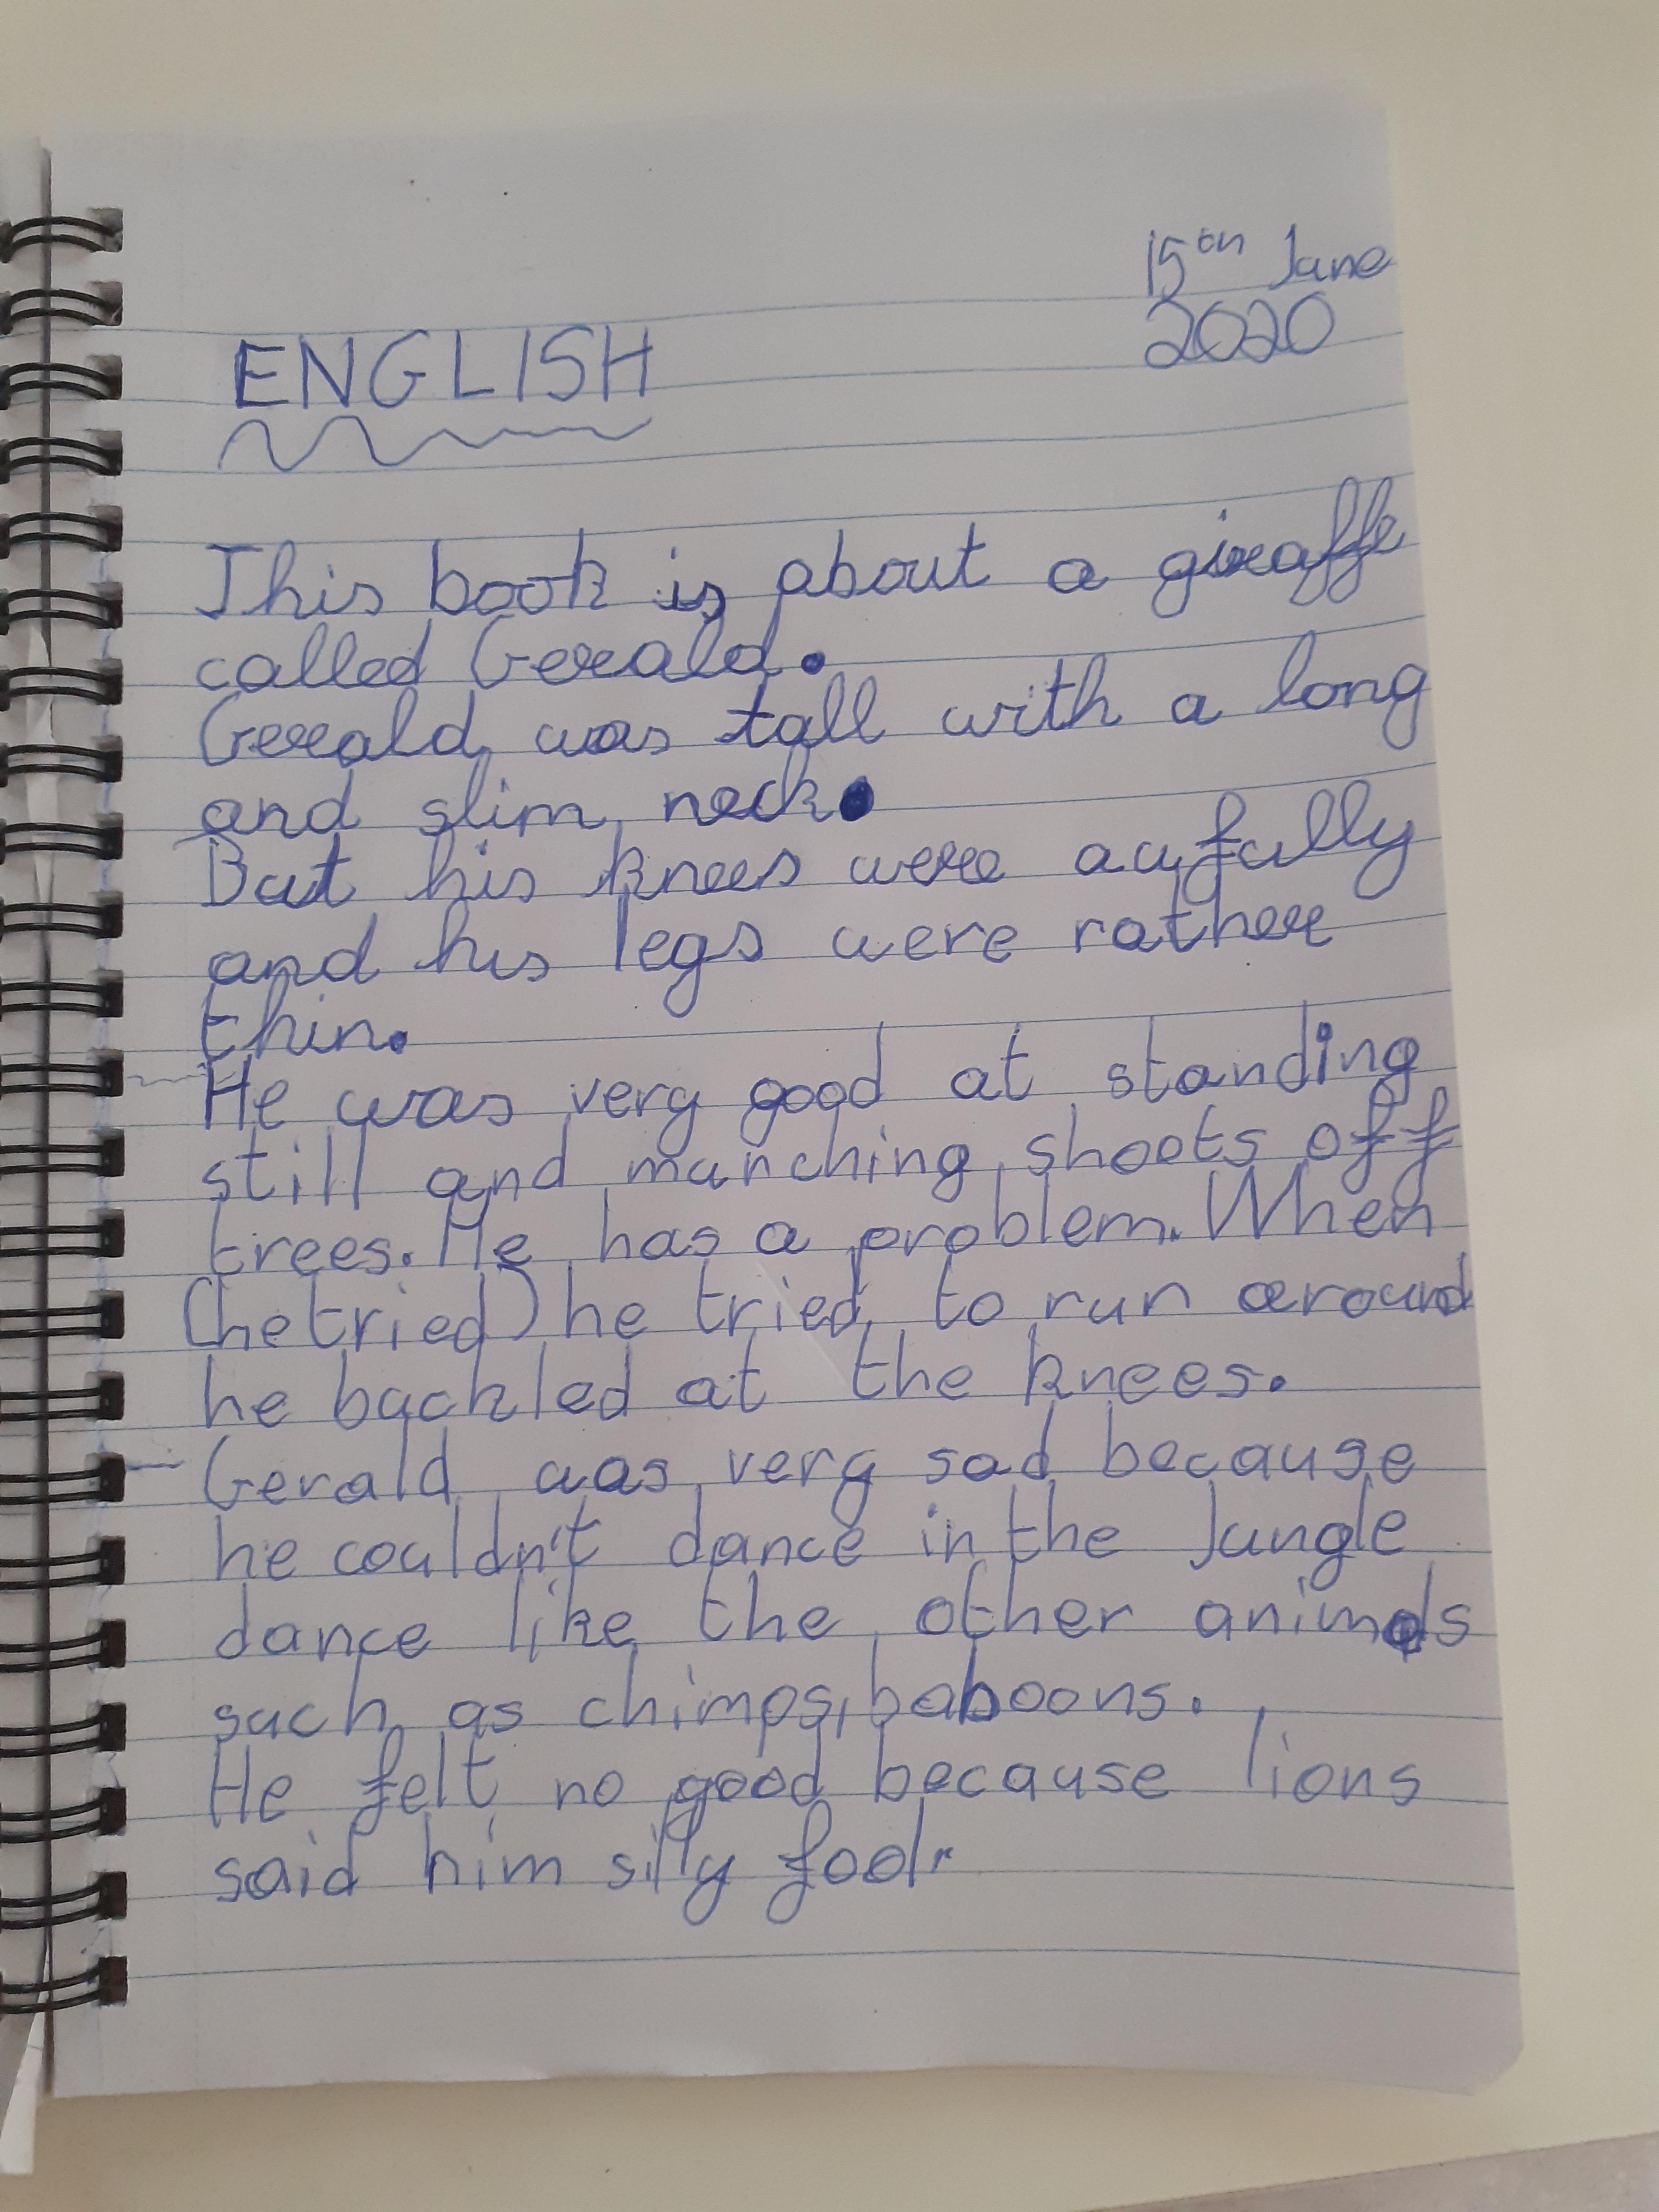 15th June
2020
ENGLISH
This book is about a giraffe
called Gerald.
Gerald was tall with a long
and slim neck.
But his knees were awfully
and his legs were rather
thin.
He was very good at standing
still and munching shoots off
trees. He has a problem. When
(he tried) he tried to run around
he buckled at the knees.
Gerald was very sad because
he couldn't dance in the Jungle
dance like the other animals
such as chimps, baboons.
He felt no good because lions
said him silly fool.